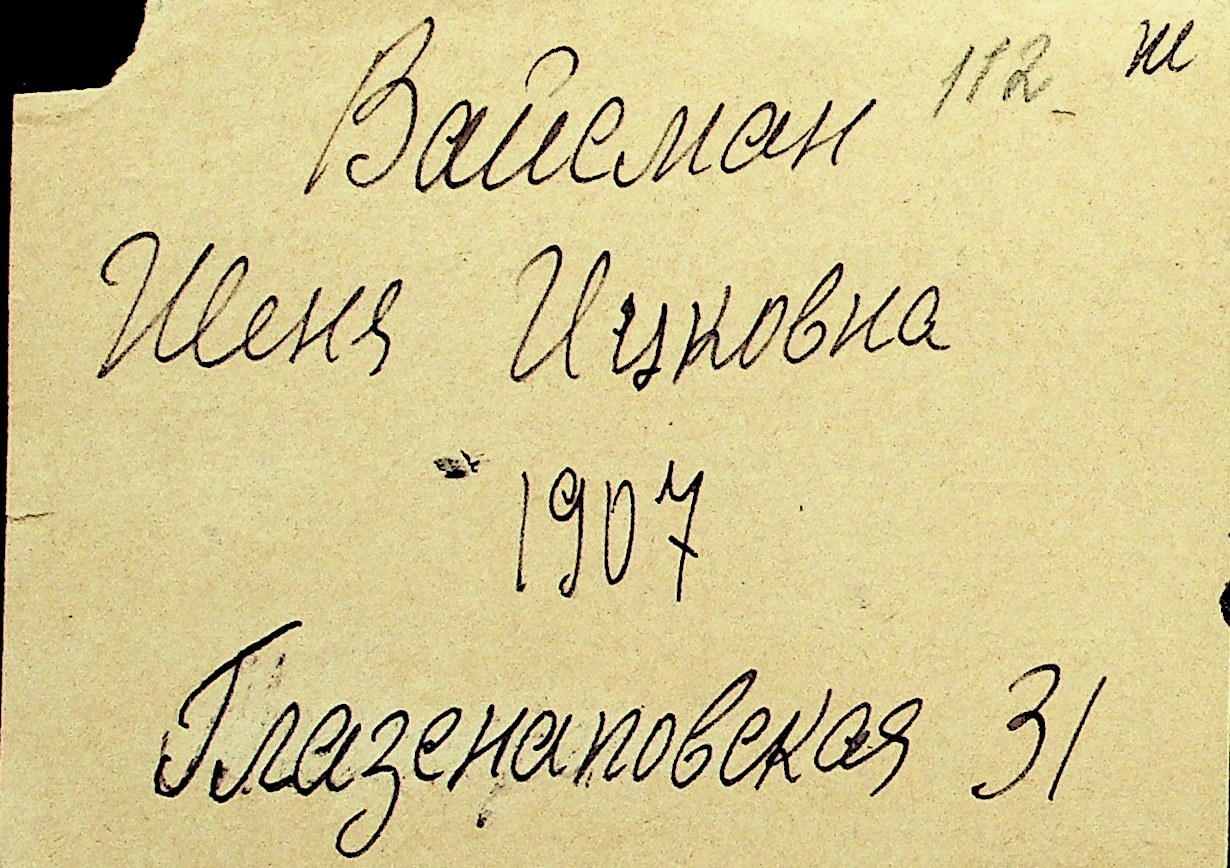 Вайсман
Шеня Ицковна
1907
Глазенаповская 31